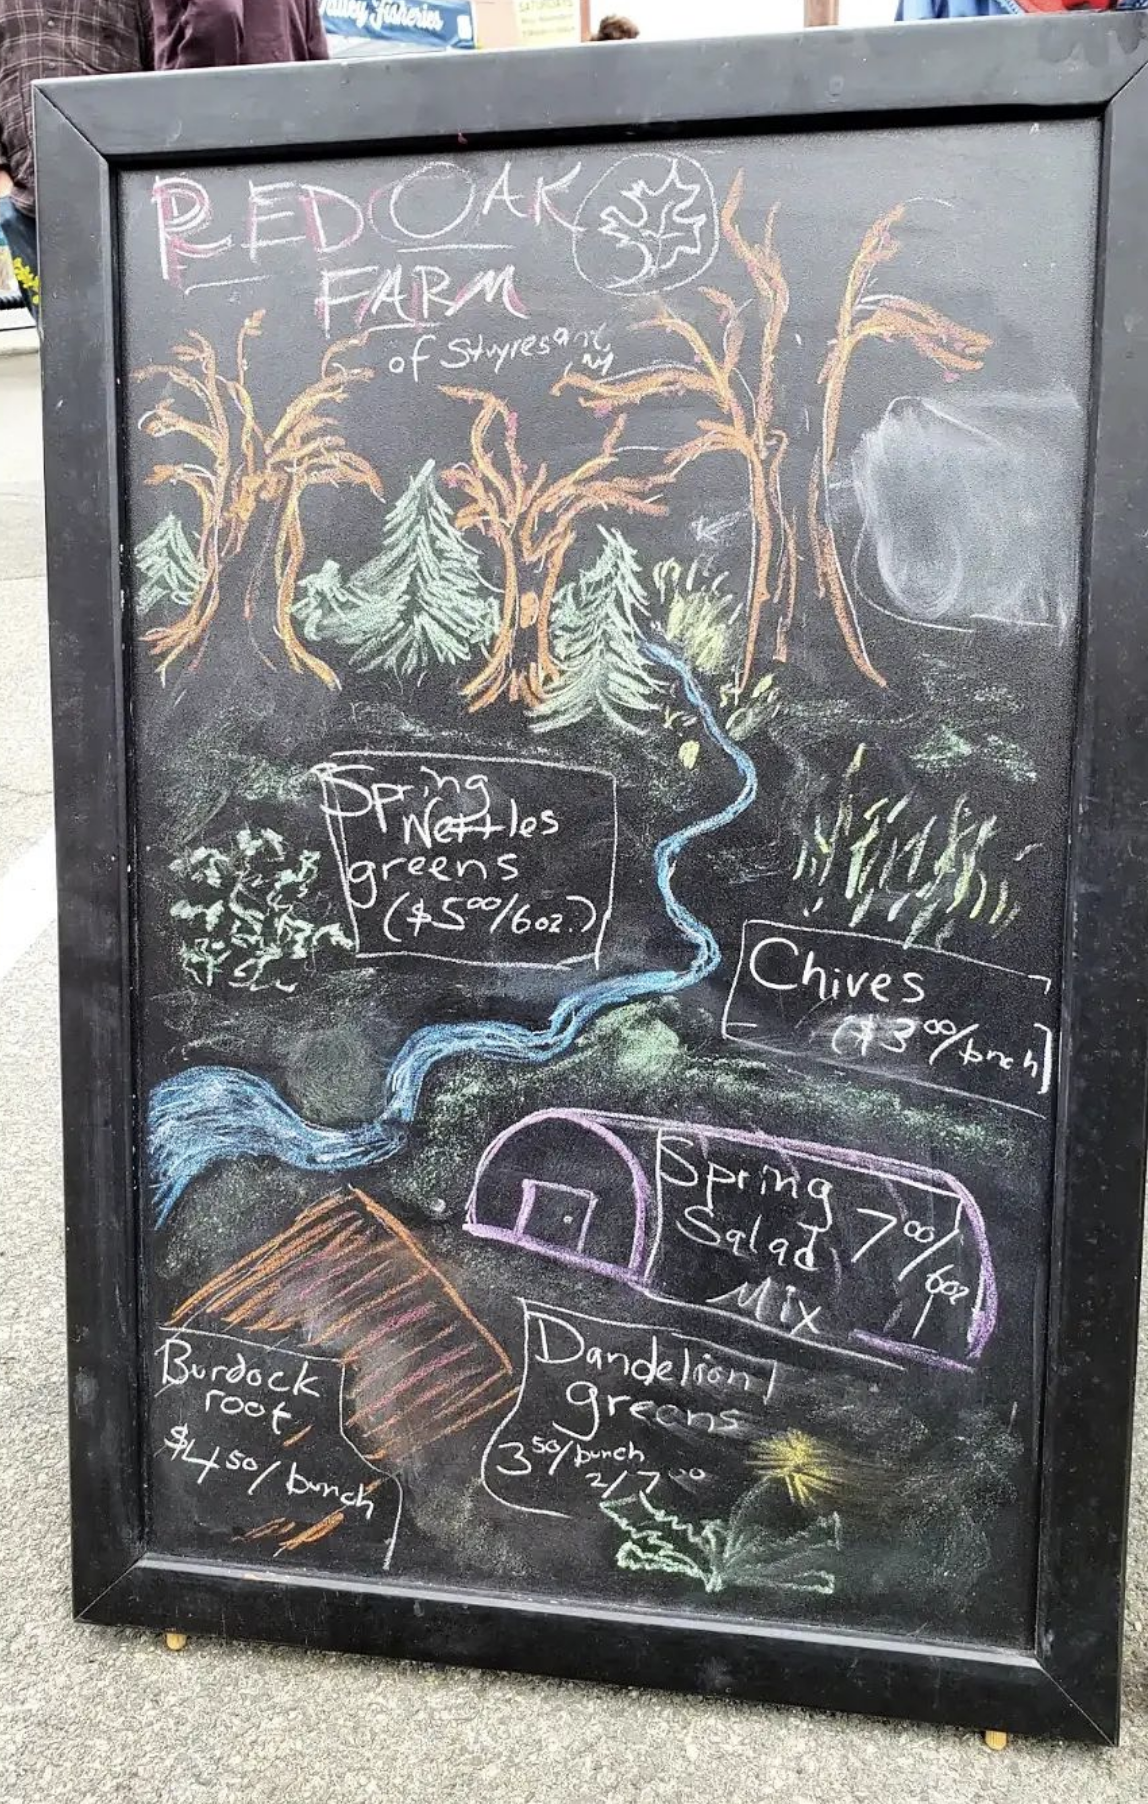 Valley Fisheries
SATURDAYS
RED OAK
FARM
of Stuyvesant,
NY
Spring
Nettles
greens
($5⁰⁰/6oz.)
Chives
($3⁰⁰/bnch)
Spring
Salad
Mix
7⁰⁰/6oz
Burdock
root
$4⁵⁰/bunch
Dandelion
greens
3⁵⁰/bunch
2/7⁰⁰